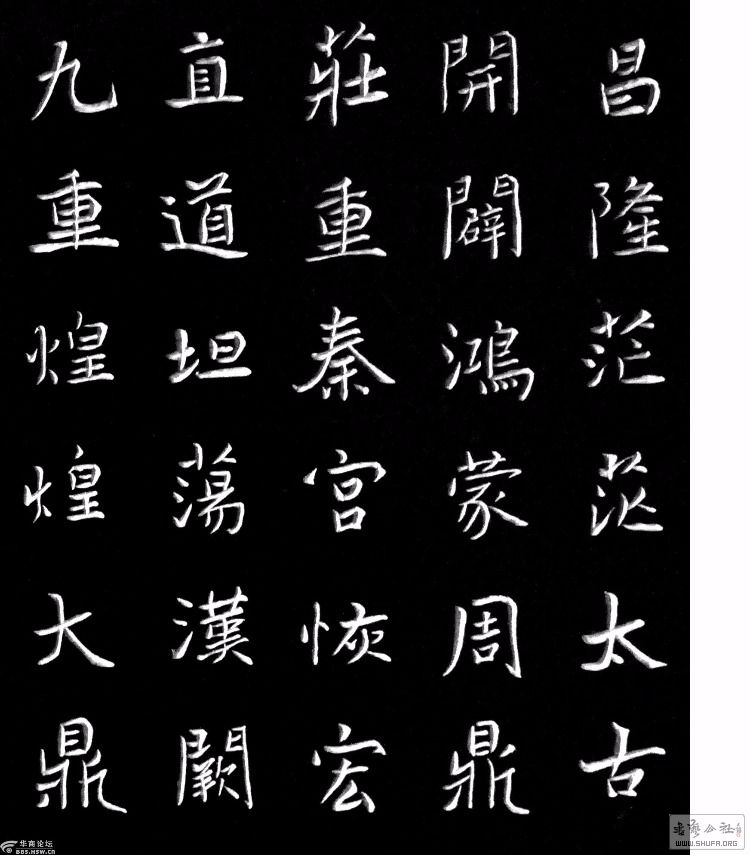 昌隆茫茫太古
開闢鴻蒙周鼎
莊重秦宮恢宏
直道坦蕩漢闕
九重煌煌大鼎
华商论坛
BBS.HSW.CN
WWW.SHUFA.ORG